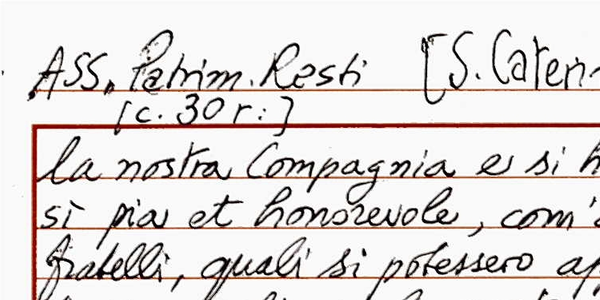 ASS, Patrim. Resti [S. Cater
[c. 30 r:]
la nostra Compagnia e si h
sì pia et honorevole, com'
fratelli, quali si potessero ap